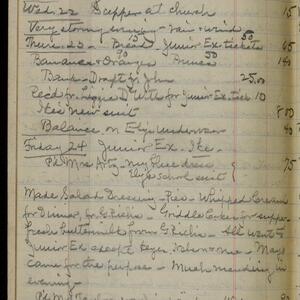 Wed. 22 Supper at church 15
Very stormy evening - rain & wind
Thurs. 23 - Bread 15 Junior Ex. tickets 50 65
Bananas & Oranges Prunes 50 140
Bank - Draft for John 25.00
Recd for Lizzie D Witts for Junior Ex. tick. 10
Ikes new suit 800
Balance on Elys underwear 140
Friday 24 Junior Ex. Ike
Pd Mrs Artz - my blue dress 75
Elys School suit
Made Salad Dressing - Pies - Whipped Cream
for Dinner, for G Richs - Griddle Cakes for supper
fresh buttermilk from G Richs - All went to
Junior Ex except Keyes, John & me - May
came for the purpose - Much mending in
evening -